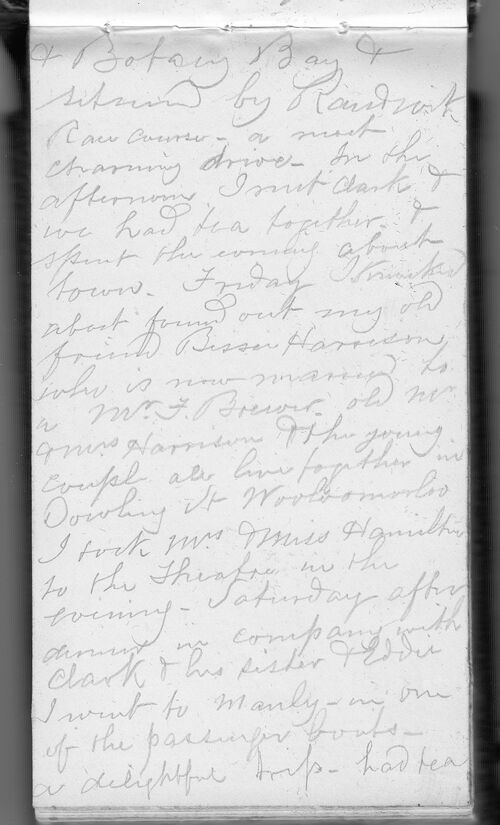 & Botany Bay &
return by Randwick
Race course - a most
charming drive - In the
afternoon I met Clark &
we had tea together &
spent the evening about
town. Friday I knocked
about found out my old
friend Bessie Harrison
who is now married to
a Mr F. Brewer. old Mr
& Mrs Harrison & the young
couple all live together in
Dowling St Woolloomooloo
I took Mrs & Miss Hamilton
to the Theatre in the
evening - Saturday after
dinner in company with
Clark & his sister & Eddie
I went to Manly - in one
of the passenger boats -
a delightful trip - had tea